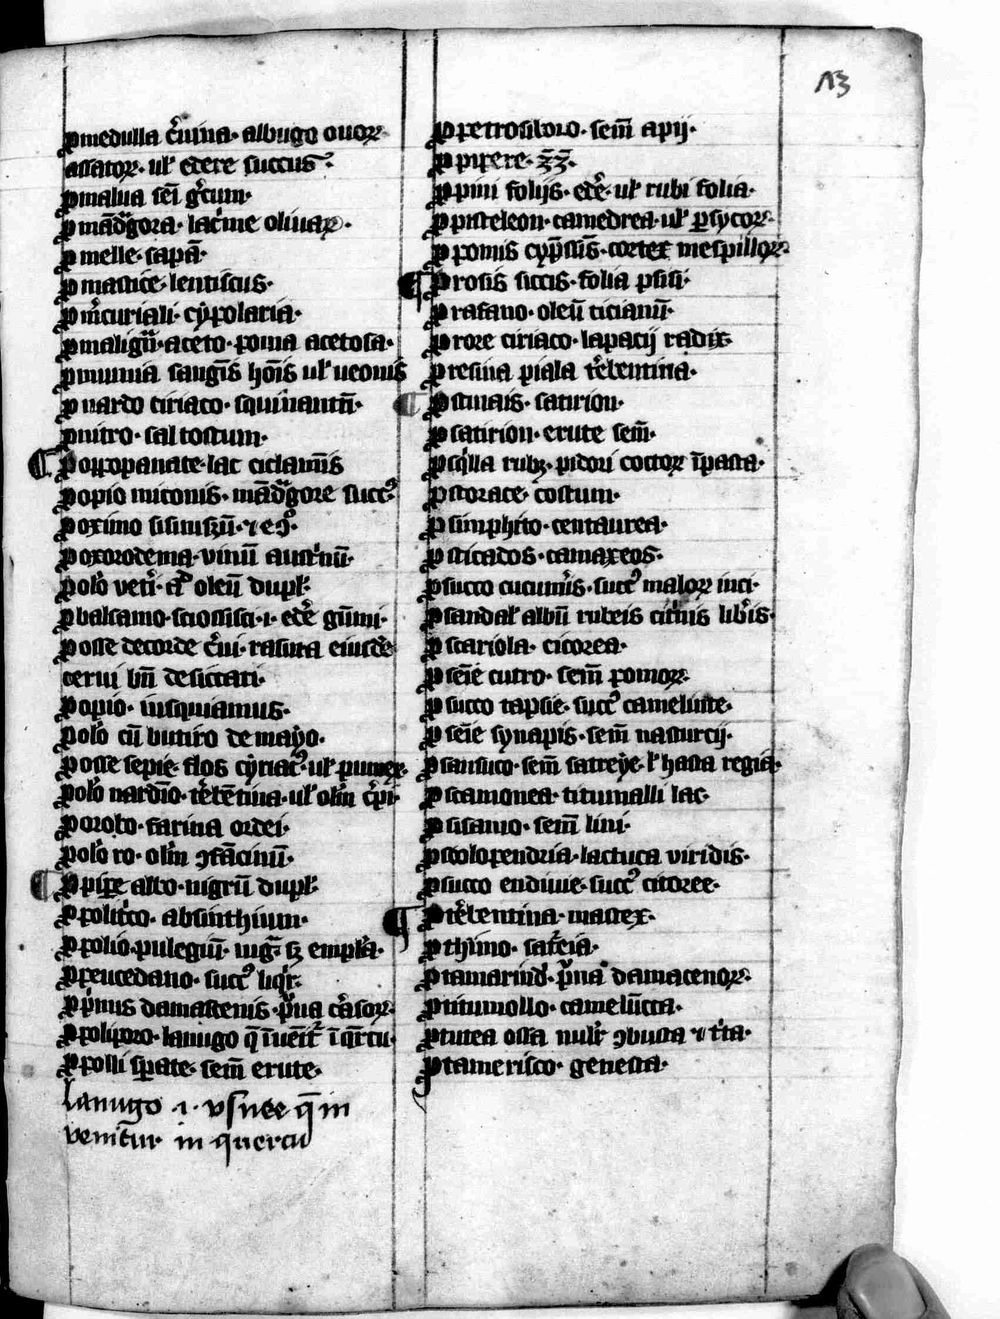 13
ꝓ medulla c͛uina · albugo ouoꝝ
assatoꝝ · ul̛ edere succus
ꝓ malua sem̄ g͛cum ·
ꝓ mād͛gora · lac͛me oliuaꝝ ·
ꝓ melle · sapā ·
ꝓ mastice · lentiscus ·
ꝓ m͛curiali · cypolaria ·
ꝓ maligꝰ · aceto · poma acetosa ·
ꝓ mumia sangīs hoīs ul̛
ꝓ nardo ciriaco · squinantū ·
ꝓ nitro · sal tostum ·
ꝓ oppopanate · lac ciclamīs
ꝓ opio miconis · mād͛gore succꝰ
ꝓ oximo
ꝓ oxorodema · vinū aust͛nū ·
ꝓ olo͛ vet͛i · oleū dupl̛
ꝓ balsamo · · i · ede͛ gūmi ·
ꝓ osse decorde c͛ui · rasura eiusdē
cerui bn̄ desiccati ·
ꝓ opio · iusquiamus ·
ꝓ olo͛ cū butiro de mayo ·
ꝓ osse sepie · flos ul̛ pumex ·
ꝓ olo͛ nardīo · t͛ebētina · ul̛ olm̄
ꝓ orobo · farina ordei ·
ꝓ olo͛ ro · olm̄ ꝯfācinū ·
ꝓ pipe albo · nigrū dupl̛
ꝓ polit͛co · absinthium ·
ꝓ polio · pulegiū ·
ꝓ peucedano · succꝰ liq͛r ·
ꝓ p͛nis damascenis · p͛na
ꝓ poliporo · lanugo q̄ īueīt͛ ī q͛rcu ·
ꝓ polli spate · sem̄ erute ·
Lanugo · i · vsnee q̄ in
venit͛ur in quercu
ꝓ petrosiloio · sem̄ apij ·
ꝓ pipere · zz ·
ꝓ pini folijs · ul̛ rubi folia ·
ꝓ pisteleon · camedrea · ul̛ psycoꝝ
ꝓ pomis cyp͛ssīs · cortex mespilloꝝ
ꝓ rosis siccis · folia psisi ·
ꝓ rafano · oleū cicianū ·
ꝓ rore ciriaco · lapacij radix
ꝓ resina piala t͛ebentina ·
ꝓ stinais · satirion ·
ꝓ satirion · erute sem̄ ·
ꝓ sq͛lla coctoꝝ īpasta ·
ꝓ storace · costum ·
ꝓ simphito · centaurea ·
ꝓ sticados · camaxeos ·
ꝓ succo cucum͛is · succꝰ maloꝝ
ꝓ sandal̛ albū rubeis cit͛nis
ꝓ scariola · cicorea ·
ꝓ sēie cutro · sem̄ pomoꝝ
ꝓ succo tapsie · succꝰ cameluite ·
ꝓ sēie synapis · sem̄ nasturcij ·
ꝓ sansuco · sem̄ satreye · l̛ hasta regia ·
ꝓ scamonea · titumalli lac ·
ꝓ sisamo · sem̄ lini ·
ꝓ scolopendria · lactuca viridis ·
ꝓ succo endiuie · succꝰ cicoree ·
ꝓ t͛ebentina · mastex ·
ꝓ thimo · sat͛eia ·
ꝓ tamarind̛ · p͛na damacenoꝝ
ꝓ titumollo · camelūcca ·
ꝓ tutea ossa ꝯbusta
ꝓ tamerisco · genesta ·